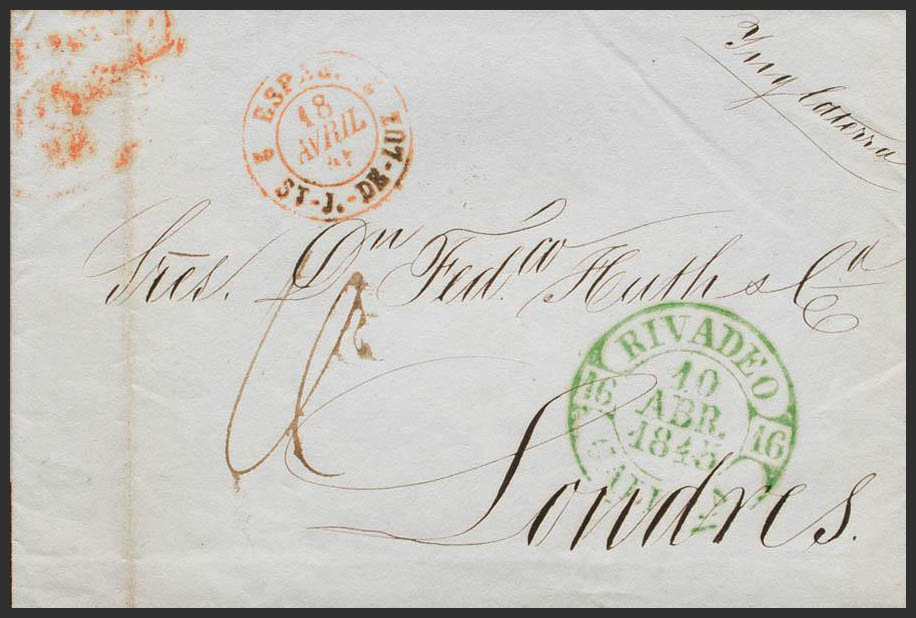 Ynglaterra
2 ESPAG. 2
18
AVRIL
45
ST-J.-DE-LUZ
Sres. Dn Fedco Huth & Ca
RIVADEO
10
ABR.
1845
16 16
Londres.